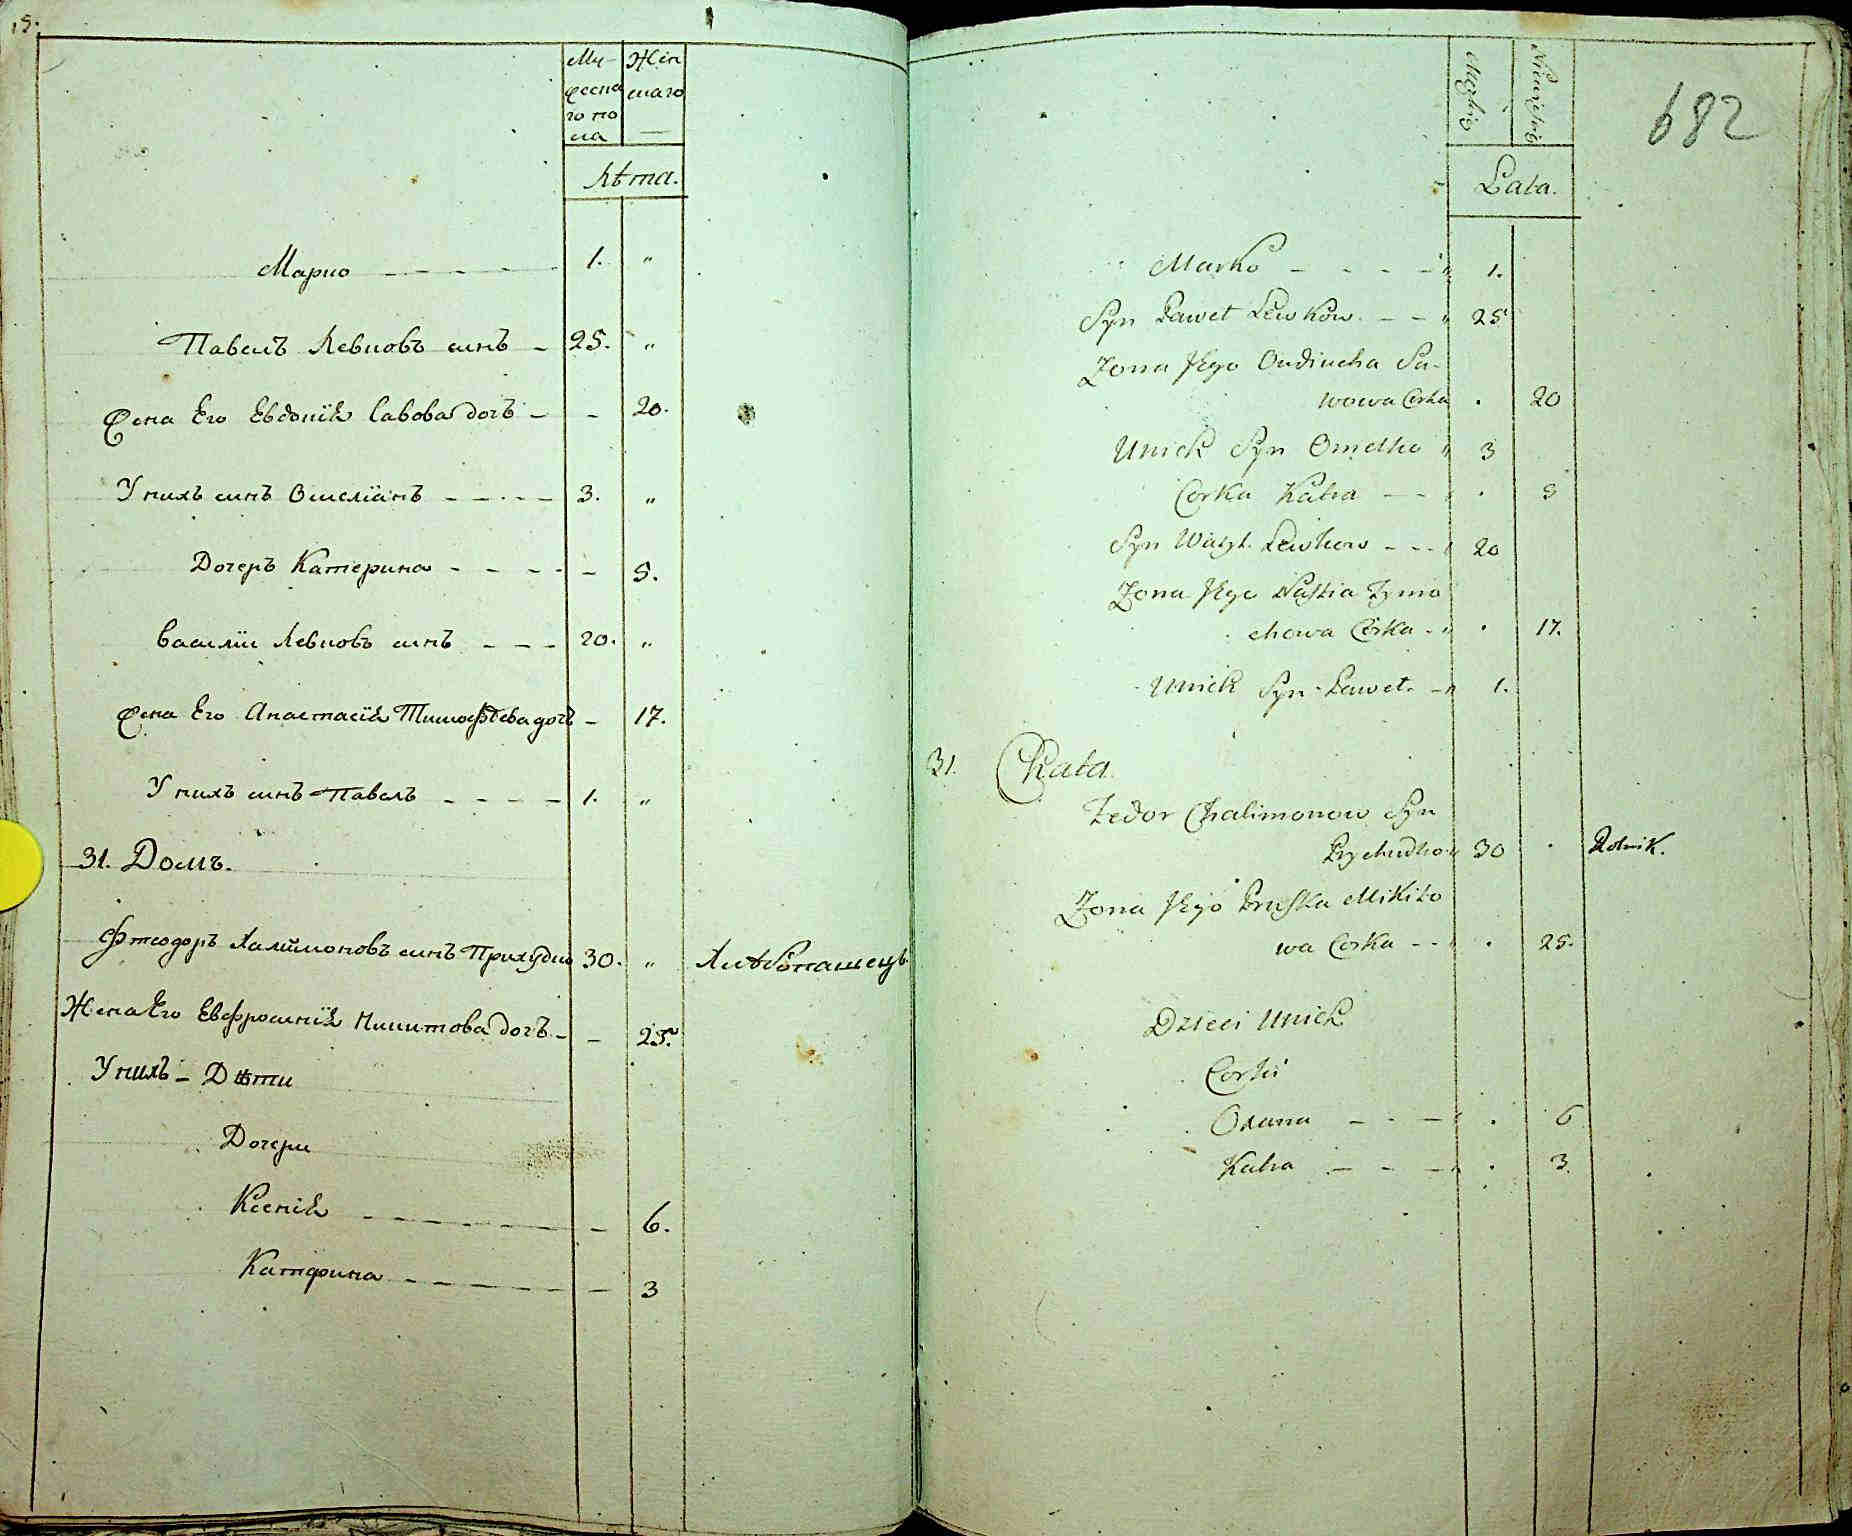 15.
Му-
жеска
го по
ла
Жен
скаго
Лѣта.
Марко 1. "
Павелъ Левковъ синъ 25. "
Жена Его Евдокія Савова дочъ - 20.
У нихъ синъ Омелїанъ 3. "
Дочеръ Катерина - 5.
Василїи Левковъ синъ 20. "
Жена Его Анастасія Тимофѣева дочъ - 17.
У нихъ синъ Павелъ 1. "
31. Домъ.
Ѳтеодоръ Халимоновъ синъ Прихудко 30. " Хлѣбопашецъ
Жена Его Евфросинія Никитова дочъ - 25.
У нихъ - Дѣти
Дочери
Ксенія - 6.
Катерина - 3
682
Męzkie
Niewieście
Lata.
Marko 1.
Syn Paweł Lewkow 25
Zona Jego Oudiucha Sa-
wowa Corka . 20
Unich Syn Omelko 3
Corka Katra . 5
Syn Wasyl Lewkow 20
Zona Jego Nastia Tymo
chowa Corka . 17.
Unich Syn Paweł 1.
31. Chata.
Fedor Chalimonow Syn
Prychudko 30 . Rolnik.
Zona Jego Pruska Mikito
wa Corka . 25.
Dzieci Unich
Corki
Oxana . 6
Katra . 3.